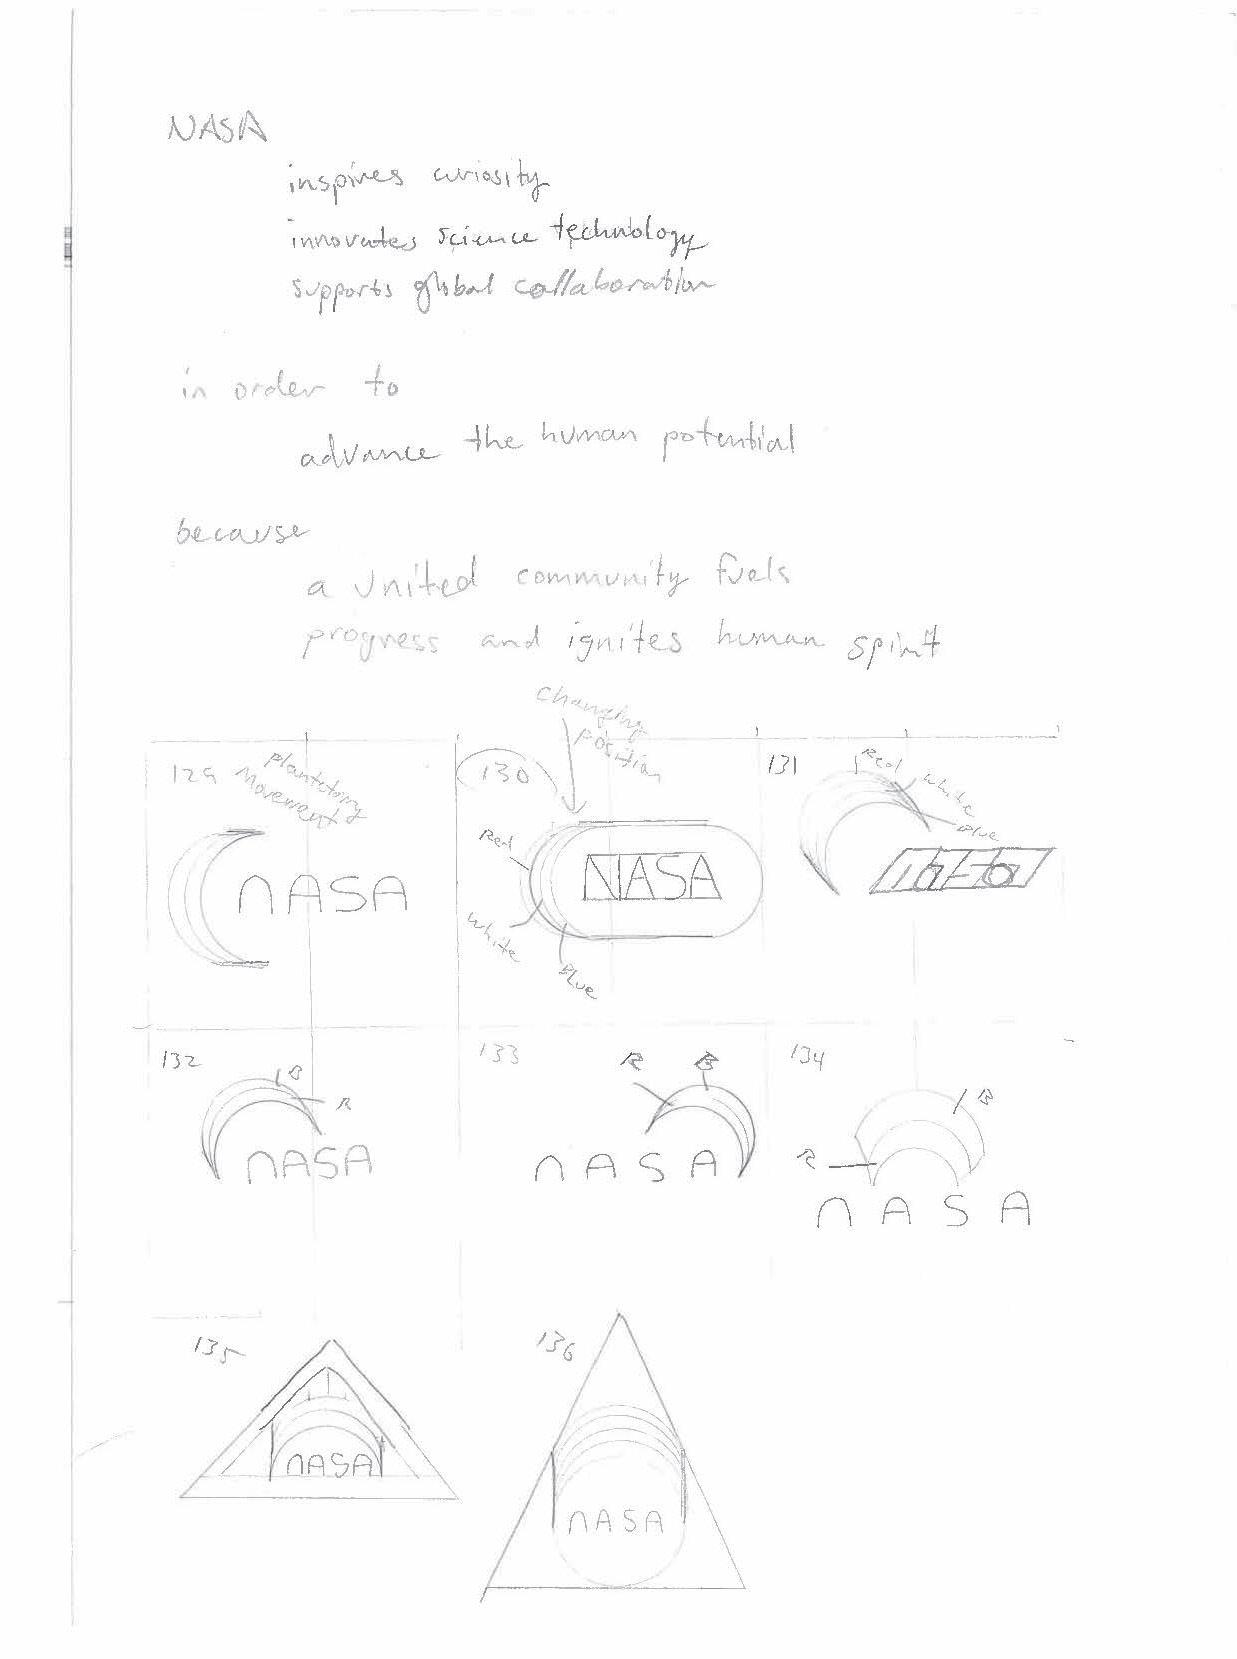 NASA
inspires curiosity
innovates science technology
supports global collaboration
in order to
advance the human potential
because
a United community fuels
progress and ignites human spirit
129
Plantetary
Movement
nASA
Changing
position
130
Red
NASA
White
Blue
131
Red
White
Blue
132
B
R
nASA
133
R
B
nASA
134
B
R
nASA
135
nASA
136
nASA